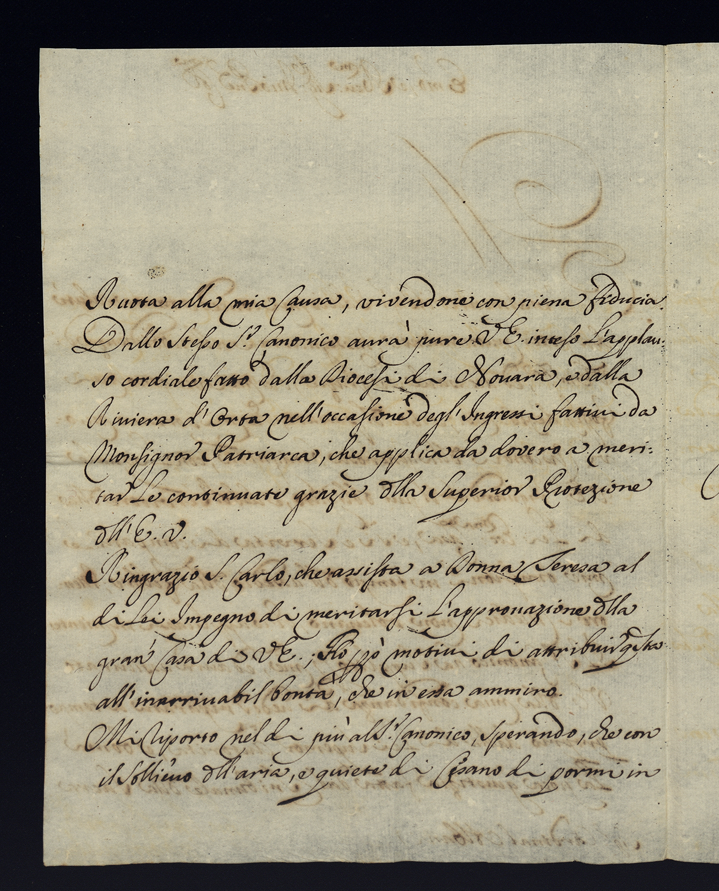 Ruota alla mia Causa, vivendone con piena fiducia.
Dallo stesso S.r Canonico aurà pure V.E. inteso L'applau-
so cordiale fatto dalla Diocesi di Nouara, e dalla
Riviera d'Orta nell'occasione degl'Ingressi fattivi da
Monsignor Patriarca, che applica da dovero a meri:
tar Le continuate grazie dlla Superior Protezione
dll'E.V.
Ringrazio S. Carlo, che assista a Donna Teresa al
di Lei Impegno di meritarsi L'approuazione dlla
gran Casa di V.E., Hò però motivi di attribuir q.sta
all'inarrivabil bontà, che in essa ammiro.
Mi riporto nel di più al S.r Canonico, sperando, che con
il sollieuo dll'aria, e quiete di Cesano di pormi in